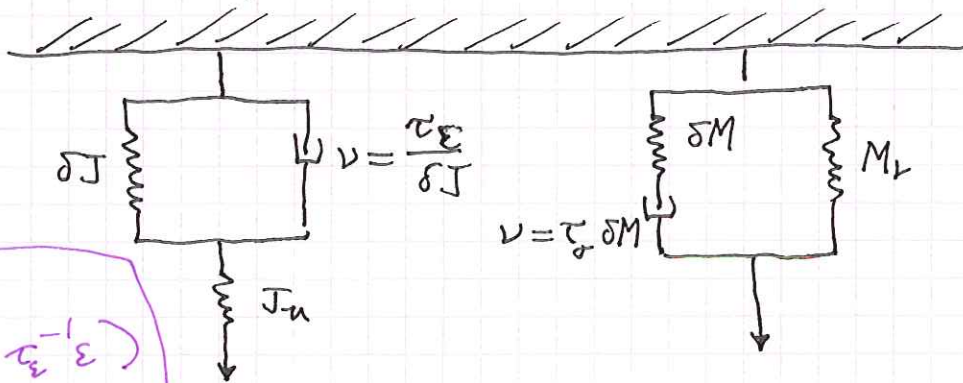 δJ
ν = τ_ε / δJ
J_u
δM
M_r
ν = τ_σ δM